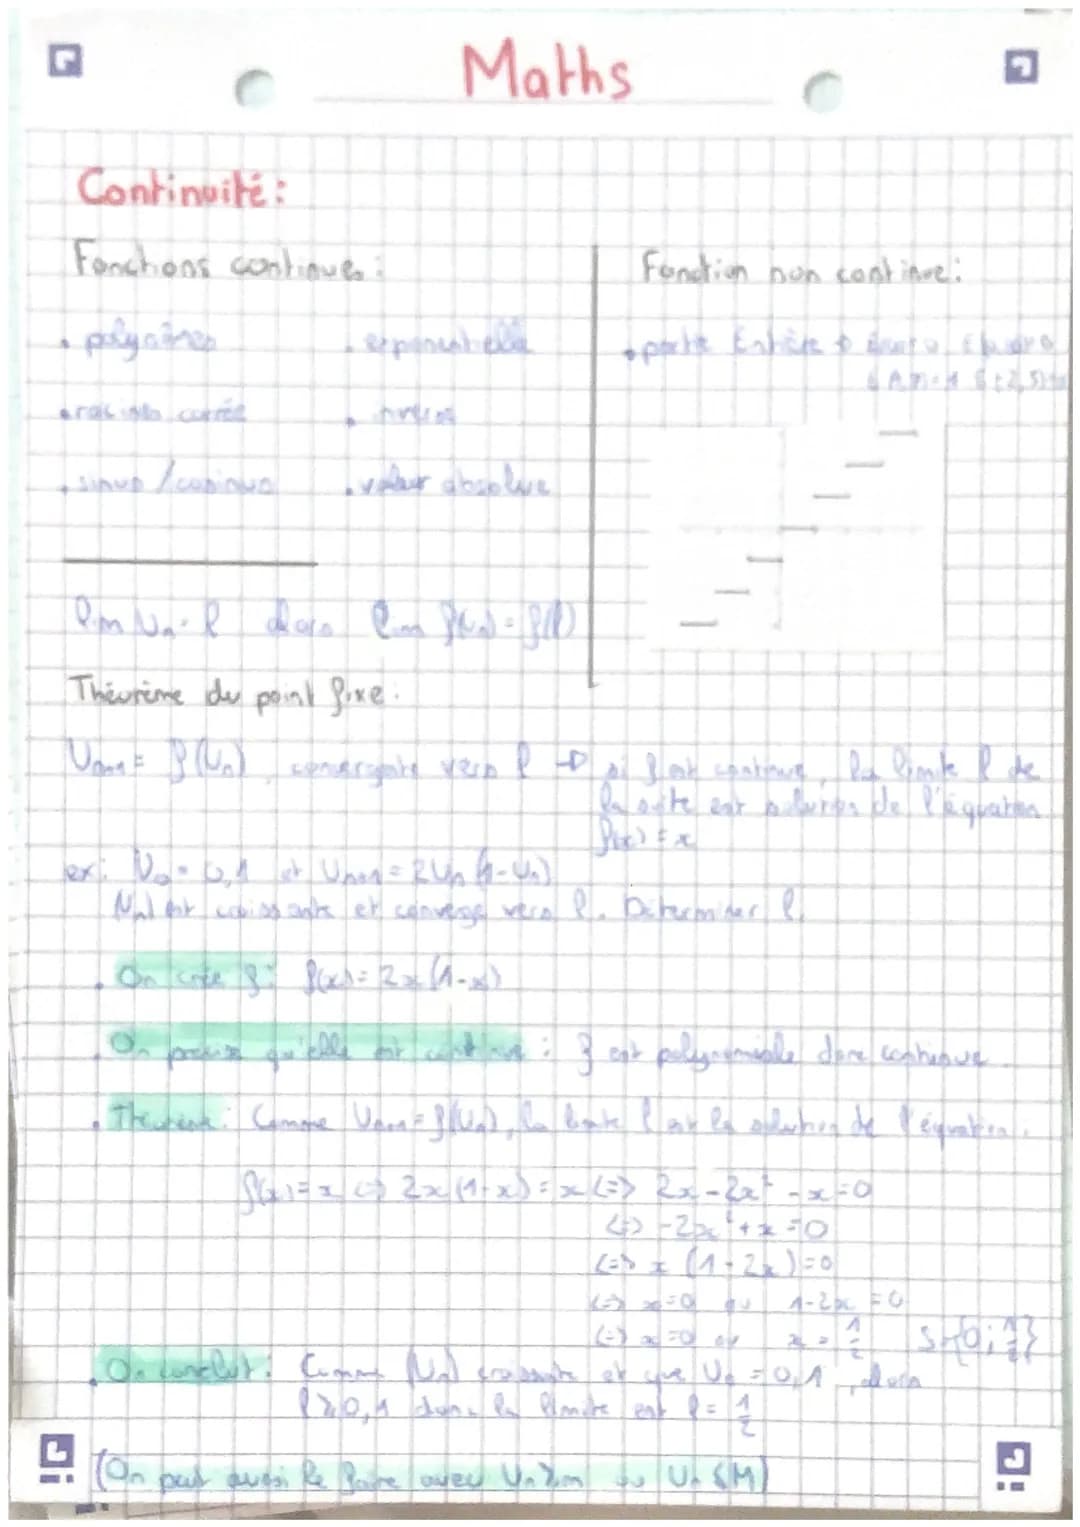 Maths
Continuité :
Fonctions continues :
Fonction non continue :
• polynômes
• exponentielle
• partie Entière
• racines carrée
• inverse
• sinus / cosinus
• valeur absolue
lim Un = l alors lim f(Un) = f(l)
Théorème du point fixe :
Un+1 = f(Un), convergente vers l → si f est continue, la limite l de
la suite est solution de l'équation
f(x) = x
ex : U0 = 0,1 et Un+1 = 2Un (1-Un)
(Un) est croissante et converge vers l. Déterminer l.
• On crée f : f(x) = 2x (1-x)
• On précise qu'elle est continue : f est polynomiale donc continue
• Théorème : Comme Un+1 = f(Un), la limite l est la solution de l'équation :
f(x) = x <=> 2x (1-x) = x <=> 2x - 2x² - x = 0
<=> -2x² + x = 0
<=> x (1 - 2x) = 0
<=> x = 0 ou 1-2x = 0
<=> x = 0 ou x = 1/2 S={0; 1/2}
• On conclut : Comme (Un) croissante et que U0 = 0,1, alors
l ≥ 0,1 donc la limite est l = 1/2
(On peut aussi le faire avec Un ≥ m ou Un ≤ M)